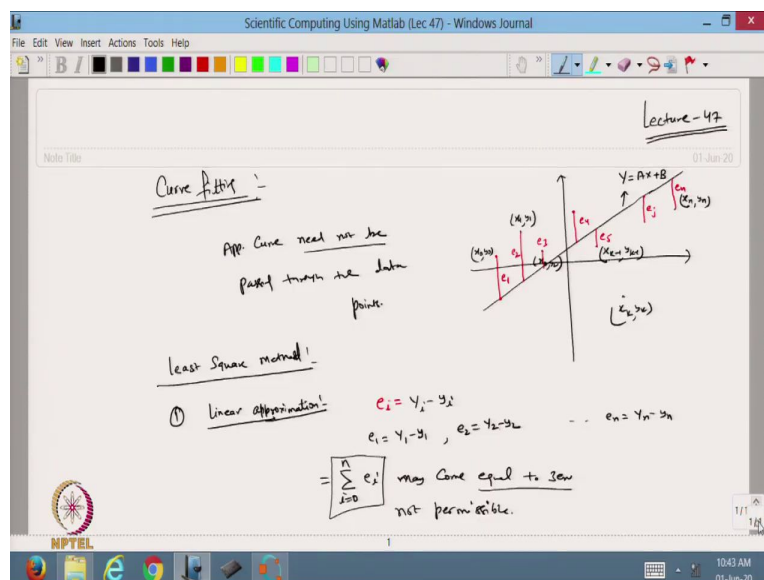 Scientific Computing Using Matlab (Lec 47) - Windows Journal
File Edit View Insert Actions Tools Help
B I
Lecture-47
Note Title
01-Jun-20
Curve fitting :-
App. Curve need not be
passed through the data
points.
Y=Ax+B
(x0,y0)
(x1,y1)
e1
e2
e3
e4
e5
ej
en
(xn,yn)
(xk-1, yk-1)
(xk, yk)
Least Square method :-
① Linear approximation :-
ei = Yi - yi
e1 = Y1-y1 , e2 = Y2-y2 .. en = Yn-yn
= n∑i=0 ei may come equal to zero
not permissible.
NPTEL
1
1/1
10:43 AM
01-Jun-20